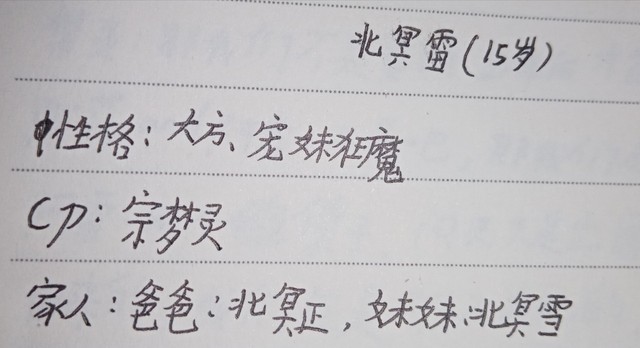 北冥雷(15岁)
性格：大方、宠妹狂魔
CP：宗梦灵
家人：爸爸：北冥正，妹妹：北冥雪